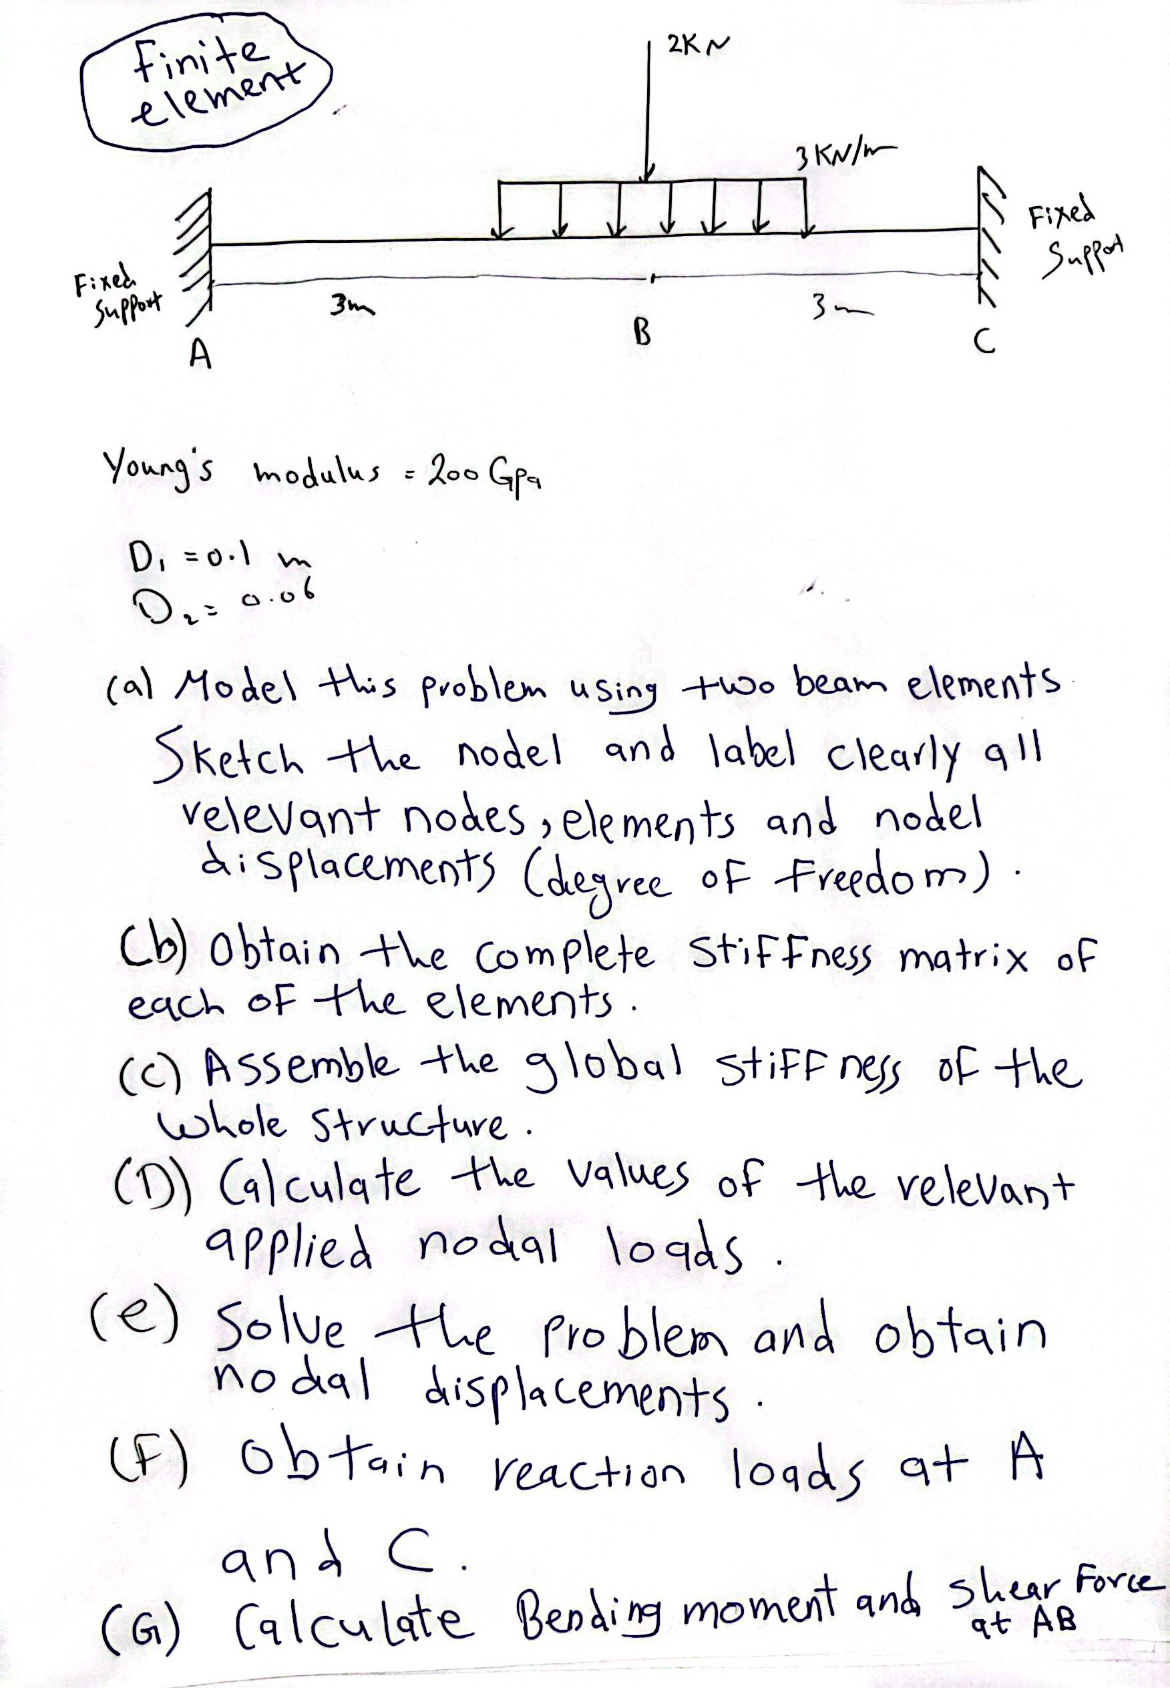 Finite
element
2KN
3KN/m
Fixed
Support
Fixed
Support
3m
3m
A
B
C
Young's modulus = 200 Gpa
D₁ = 0.1 m
D₂ = 0.06
(a) Model this problem using two beam elements
Sketch the nodel and label clearly all
relevant nodes, elements and nodel
displacements (degree of freedom).
(b) Obtain the complete stiffness matrix of
each of the elements.
(C) Assemble the global stiffness of the
whole structure.
(D) Calculate the values of the relevant
applied nodal loads.
(e) Solve the problem and obtain
nodal displacements.
(F) obtain reaction loads at A
and C.
(G) Calculate Bending moment and shear Force
at AB